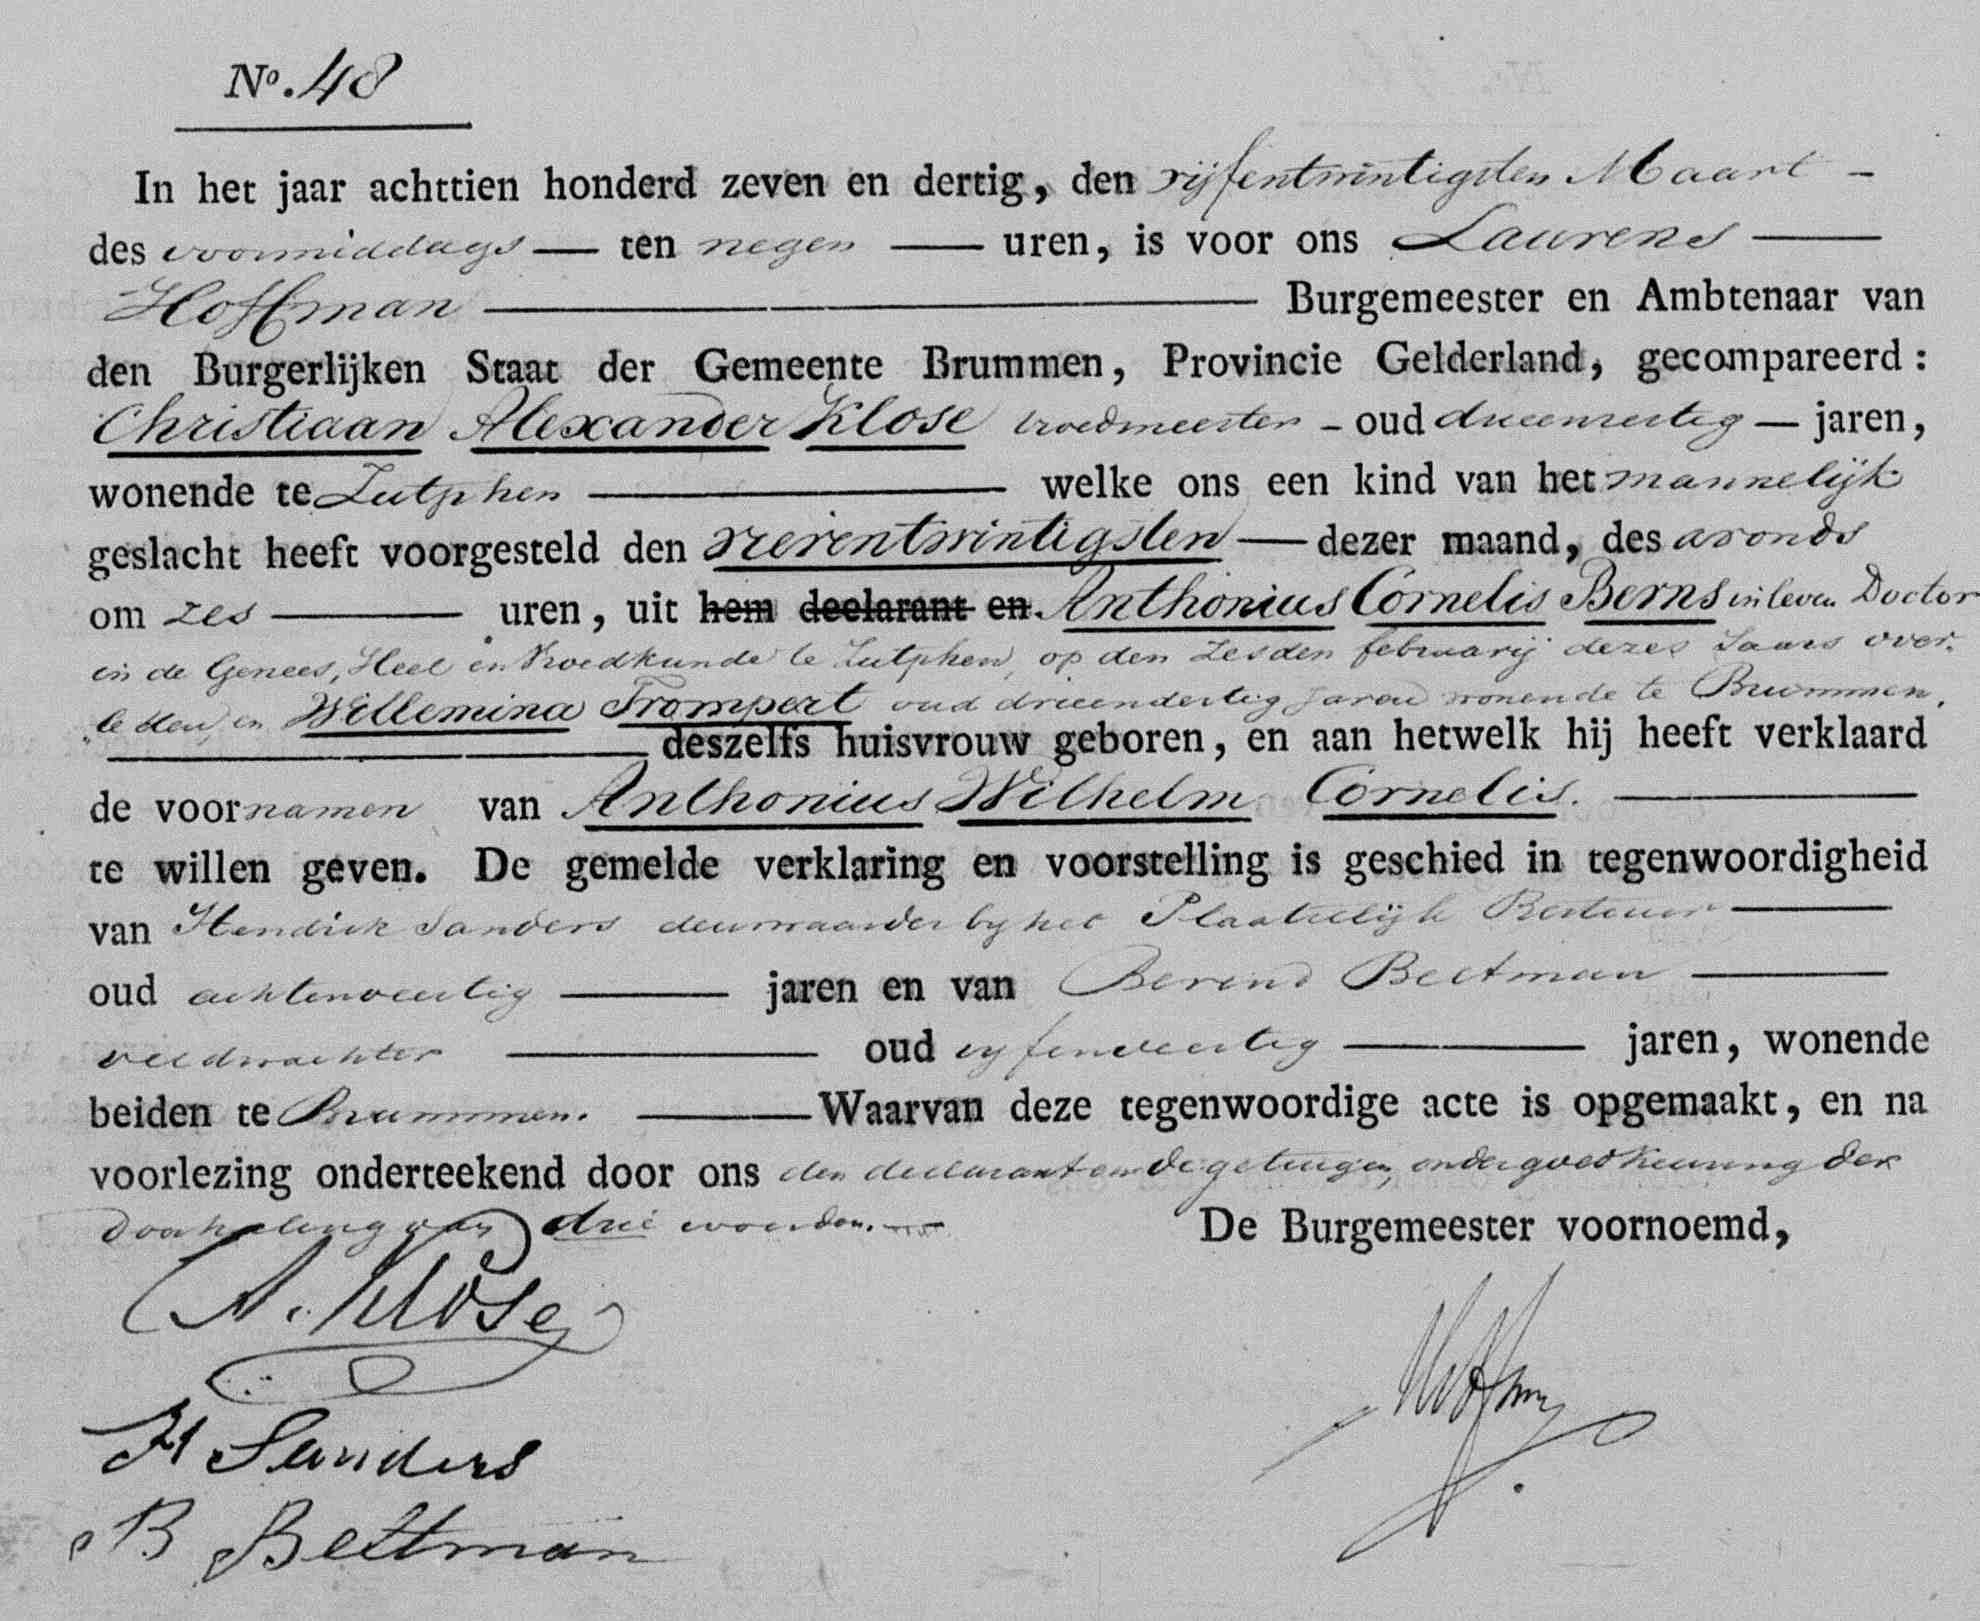 No. 48
In het jaar achttien honderd zeven en dertig, den vijfentwintigsten Maart -
des voormiddags — ten negen — uren, is voor ons Laurens —
Hoffman — Burgemeester en Ambtenaar van
den Burgerlijken Staat der Gemeente Brummen, Provincie Gelderland, gecompareerd:
Christiaan Alexander Klose vroedmeester - oud drieenveertig — jaren,
wonende te Zutphen — welke ons een kind van het mannelijk
geslacht heeft voorgesteld den vierentwintigsten — dezer maand, des avonds
om zes — uren, uit hem declarant en Anthonius Cornelis Berns in leven Doctor
in de Genees, Heel en Vroedkunde te Zutphen, op den Zesden februarij dezes Jaars over„
„leden, en Willemina Trompert oud drieendertig jaren wonende te Brummen,
— deszelfs huisvrouw geboren, en aan hetwelk hij heeft verklaard
de voornamen van Anthonius Wilhelm Cornelis. —
te willen geven. De gemelde verklaring en voorstelling is geschied in tegenwoordigheid
van Hendrik Sanders deurwaarder by het Plaatselijk Bestuur —
oud achtenveertig — jaren en van Berend Beltman —
veldwachter — oud vyfenveertig — jaren, wonende
beiden te Brummen. — Waarvan deze tegenwoordige acte is opgemaakt, en na
voorlezing onderteekend door ons den declarant en de getuigen, onder goedkeuring der
doorhaling van drie woorden. —
De Burgemeester voornoemd,
A. Klose
LHoffman
H Sanders
B Beltman